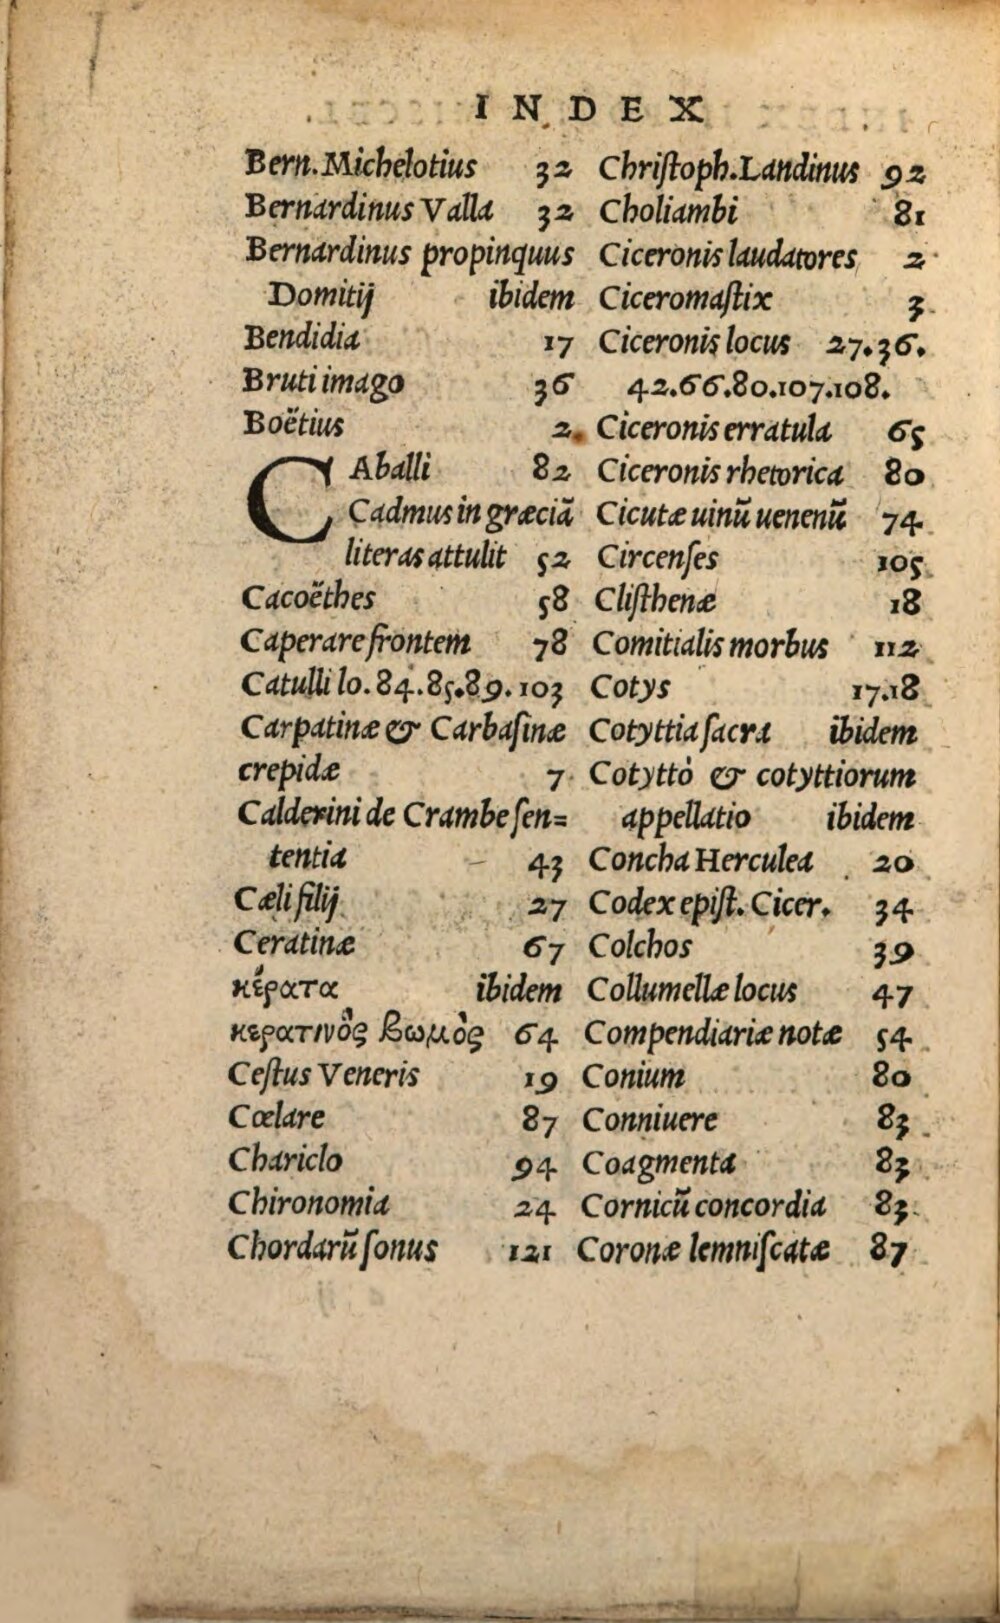 INDEX
Bern. Michelotius 32
Bernardinus Valla 32
Bernardinus propinquus
Domitij ibidem
Bendidia 17
Bruti imago 36
Boëtius 2
CAballi 82
Cadmus in græciã
literas attulit 52
Cacoëthes 58
Caperare frontem 78
Catulli lo. 84.85.89.103
Carpatinæ & Carbasinæ
crepidæ 7
Calderini de Crambe sen=
tentia 43
Cæli filij 27
Ceratinæ 67
κέρατα ibidem
κερατινὸς βωμὸς 64
Cestus Veneris 19
Cœlare 87
Chariclo 94
Chironomia 24
Chordarũ sonus 121
Christoph. Landinus 92
Choliambi 81
Ciceronis laudatores 2
Ciceromastix 3
Ciceronis locus 27.36.
42.66.80.107.108.
Ciceronis erratula 65
Ciceronis rhetorica 80
Cicutæ uinũ uenenũ 74
Circenses 105
Clisthenæ 18
Comitialis morbus 112
Cotys 17.18
Cotyttia sacra ibidem
Cotyttò & cotyttiorum
appellatio ibidem
Concha Herculea 20
Codex epist. Cicer. 34
Colchos 39
Collumellæ locus 47
Compendiariæ notæ 54
Conium 80
Conniuere 83
Coagmenta 83
Cornicũ concordia 83
Coronæ lemniscatæ 87